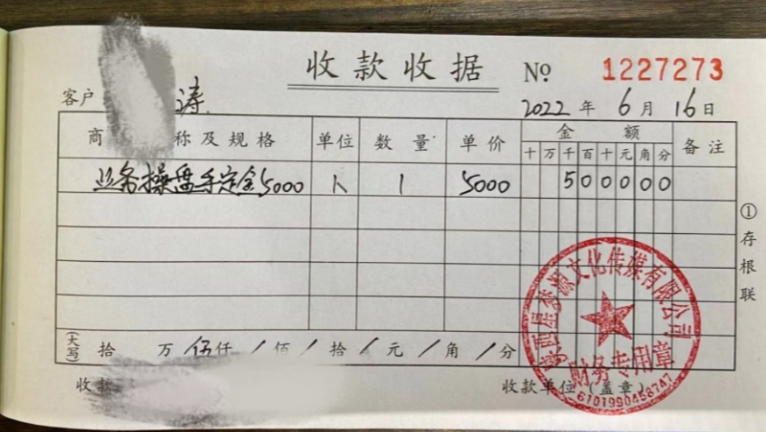 收款收据 № 1227273
客户 涛 2022年6月16日
商 称及规格 单位 数量 单价 金额 备注
十万千百十元角分
业务操盘手定金5000 人 1 5000 500000
(大写) 拾 万 伍仟 / 佰 / 拾 / 元 / 角 / 分
收款 收款单位(盖章)
①存根联
文化传媒有限公司
财务专用章
6101990458747